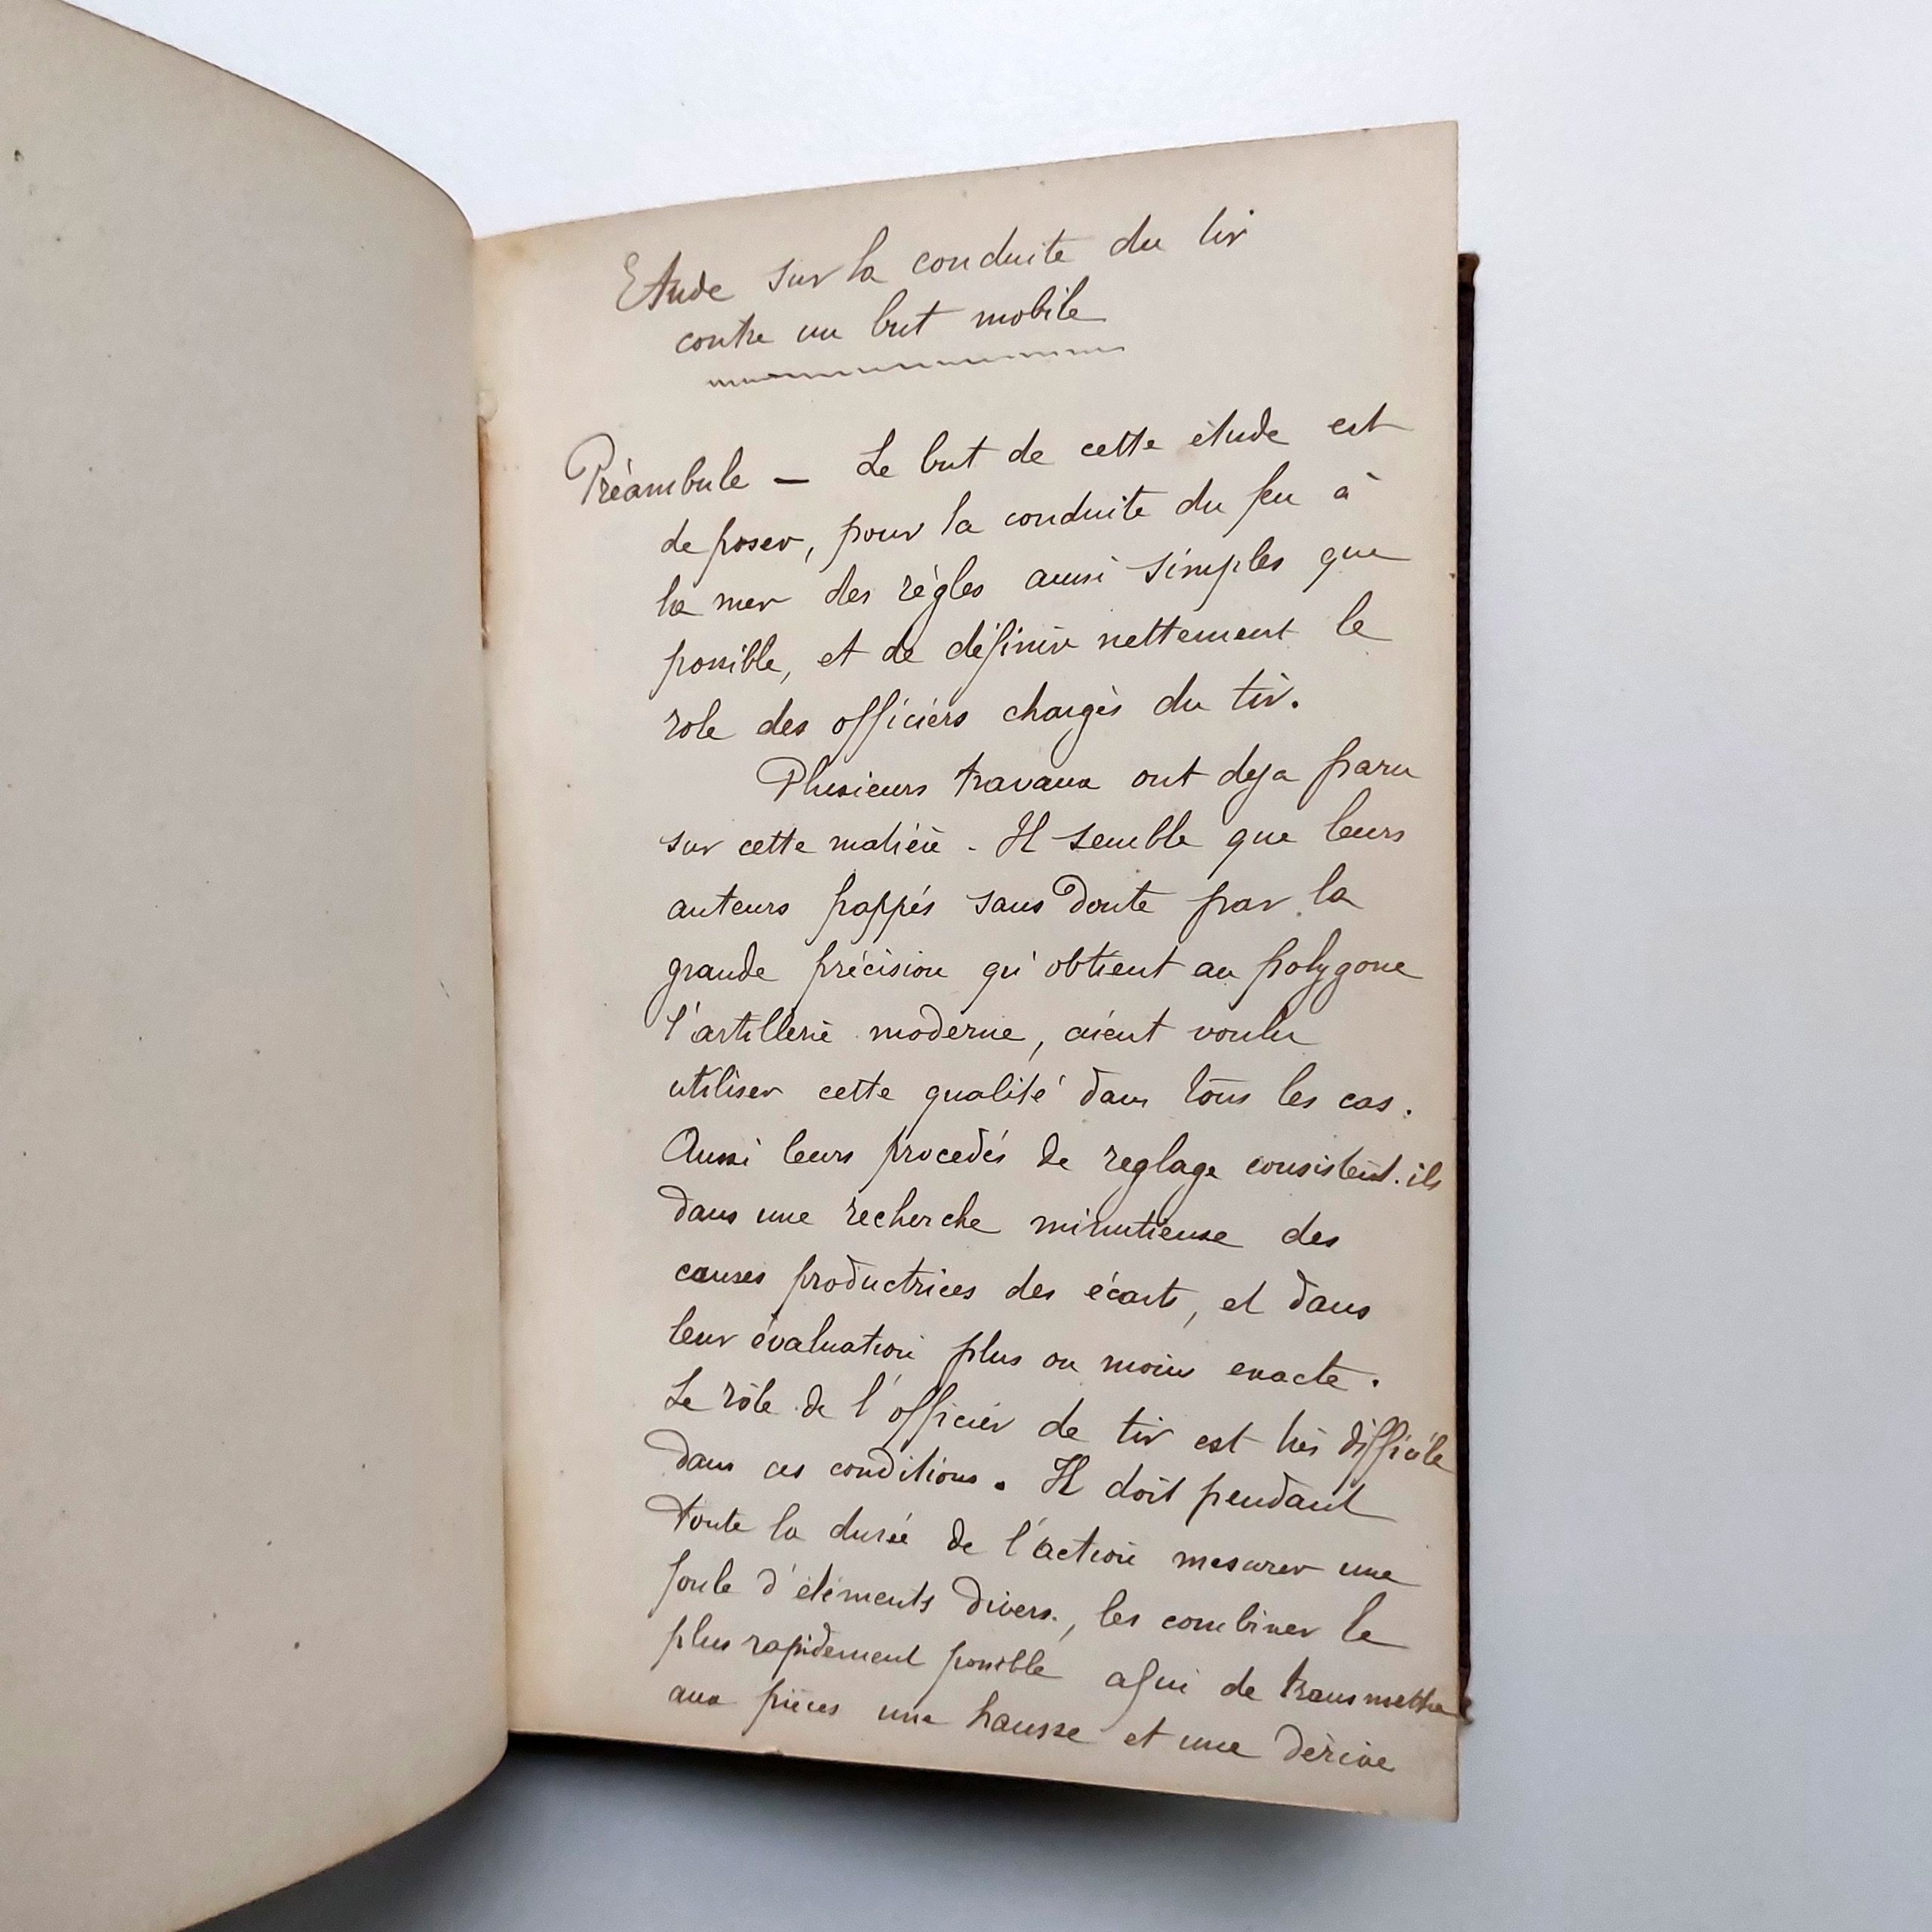 Etude sur la conduite du tir
contre un but mobile
Préambule — Le but de cette étude est
de poser, pour la conduite du feu à
la mer des règles aussi simples que
possible, et de définir nettement le
role des officiers chargés du tir.
Plusieurs travaux ont deja paru
sur cette matière. Il semble que leurs
auteurs frappés sans doute par la
grande précision qu'obtient au polygone
l'artillerie moderne, aient voulu
utiliser cette qualité dans tous les cas.
Aussi leurs procedés de reglage consistent-ils
dans une recherche minutieuse des
causes productrices des écarts, et dans
leur évaluation plus ou moins exacte.
Le rôle de l'officier de tir est très difficile
dans ces conditions. Il doit pendant
toute la durée de l'action mesurer une
foule d'éléments divers, les combiner le
plus rapidement possible afin de transmettre
aux pièces une hausse et une dérive